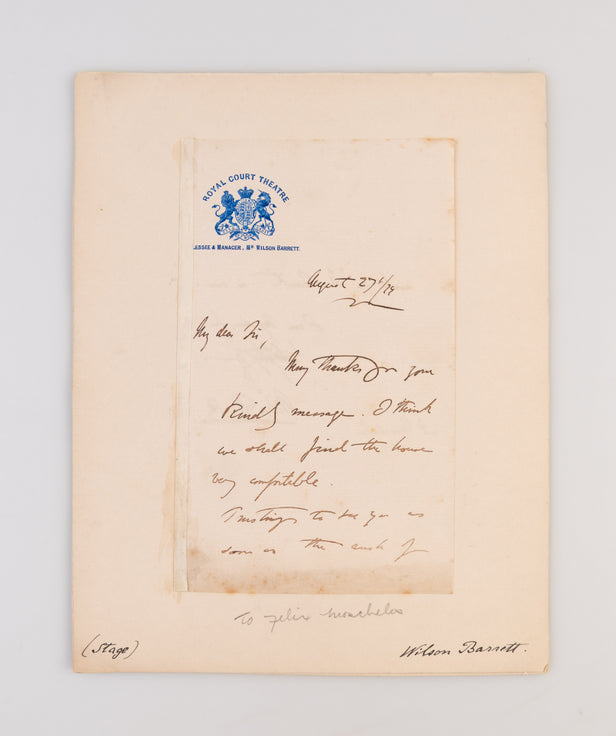 ROYAL COURT THEATRE
ESSEE & MANAGER, MR WILSON BARRETT.
August 27th/79
My dear Sir,
Many thanks for your
kindly message. I think
we shall find the house
very comfortable.
Trusting to see you as
soon as the rush of
To Felix Moscheles
(Stage)
Wilson Barrett.